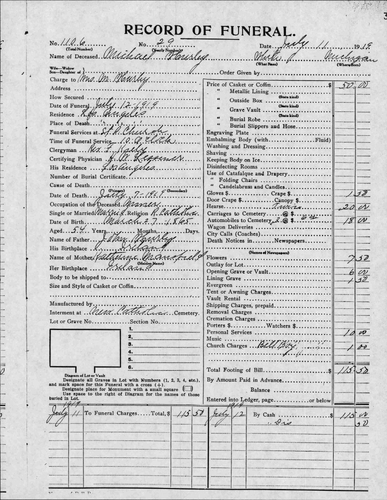 RECORD OF FUNERAL.
No. 1106 No. 29 Date, July 11 1919
(Total Number) (Yearly Number)
Name of Deceased Michael Hursly White Michigan
(What Race) (Where Born)
Wife—Widow
Son—Daughter of Order Given by
Charge to Mrs. M. Hursly
Address
How Secured
Date of Funeral July 12-1919
Residence Los Angeles
Place of Death
Funeral Services at
Time of Funeral Service
Clergyman Rev.
Certifying Physician
His Residence Los Angeles
Number of Burial Certificate
Cause of Death
Date of Death July
Occupation of the Deceased
Single or Married Religion
Date of Birth March
Aged 54 Years, Months, Days
Name of Father John Hursly
His Birthplace Ireland
Name of Mother Catherine
(Maiden Name)
Her Birthplace Ireland
Body to be shipped to
Size and Style of Casket or Coffin
Manufactured by
Interment at New Cemetery.
Lot or Grave No. Section No.
1.
2.
3.
4.
5.
6.
Diagram of Lot or Vault
Designate all Graves in Lot with Numbers (1, 2, 3, 4, etc.)
and mark space for this Funeral with a cross (+).
Designate place for Monument with a small square
Use space to the right of Diagram for the names of those
buried in Lot.
Price of Casket or Coffin $ 50.00
(State Kind)
" Metallic Lining
" Outside Box
(State Kind)
" Grave Vault
(State Kind)
" Burial Robe
(State Kind)
" Burial Slippers and Hose
Engraving Plate
Embalming Body (with Fluid)
Washing and Dressing
Shaving
Keeping Body on Ice
Disinfecting Rooms
Use of Catafalque and Drapery
" Folding Chairs
" Candelabrum and Candles
Gloves $ Crape $ 1.50
Door Crape, Canopy
Hearse 20.00
Carriages to Cemetery @ $
Automobiles to Cemetery @ $ 18.00
Wagon Deliveries
City Calls (Coaches)
Death Notices in Newspapers
(Names of Newspapers)
Flowers 7.50
Outlay for Lot
Opening Grave or Vault 6.00
Lining Grave 1.50
Evergreen
Tent or Awning Charges
Vault Rental
Shipping Charges, prepaid
Removal Charges
Cremation Charges
Porters $ Watchers $
Personal Services 10.00
Music
Church Charges Bell Boy 1.00
Total Footing of Bill $ 115.50
By Amount Paid in Advance
Balance
Entered into Ledger, page or below.
1919
July 11 To Funeral Charges, Total, $ 115 50 July 12 By Cash 115 00
Dis 50